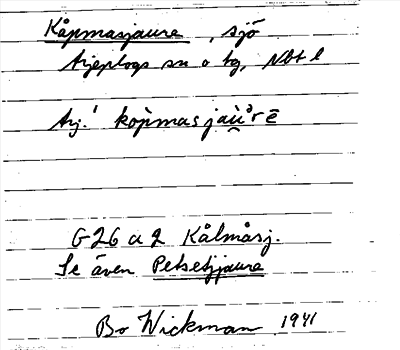 Kåpmasjaure, sjö
Arjeplogs sn o tg, Nbt l
Arj. kåpmasjau̯ᵊrē
G26 a 2 Kålmåsj.
Se även Petsetjjaure
Bo Wickman 1941